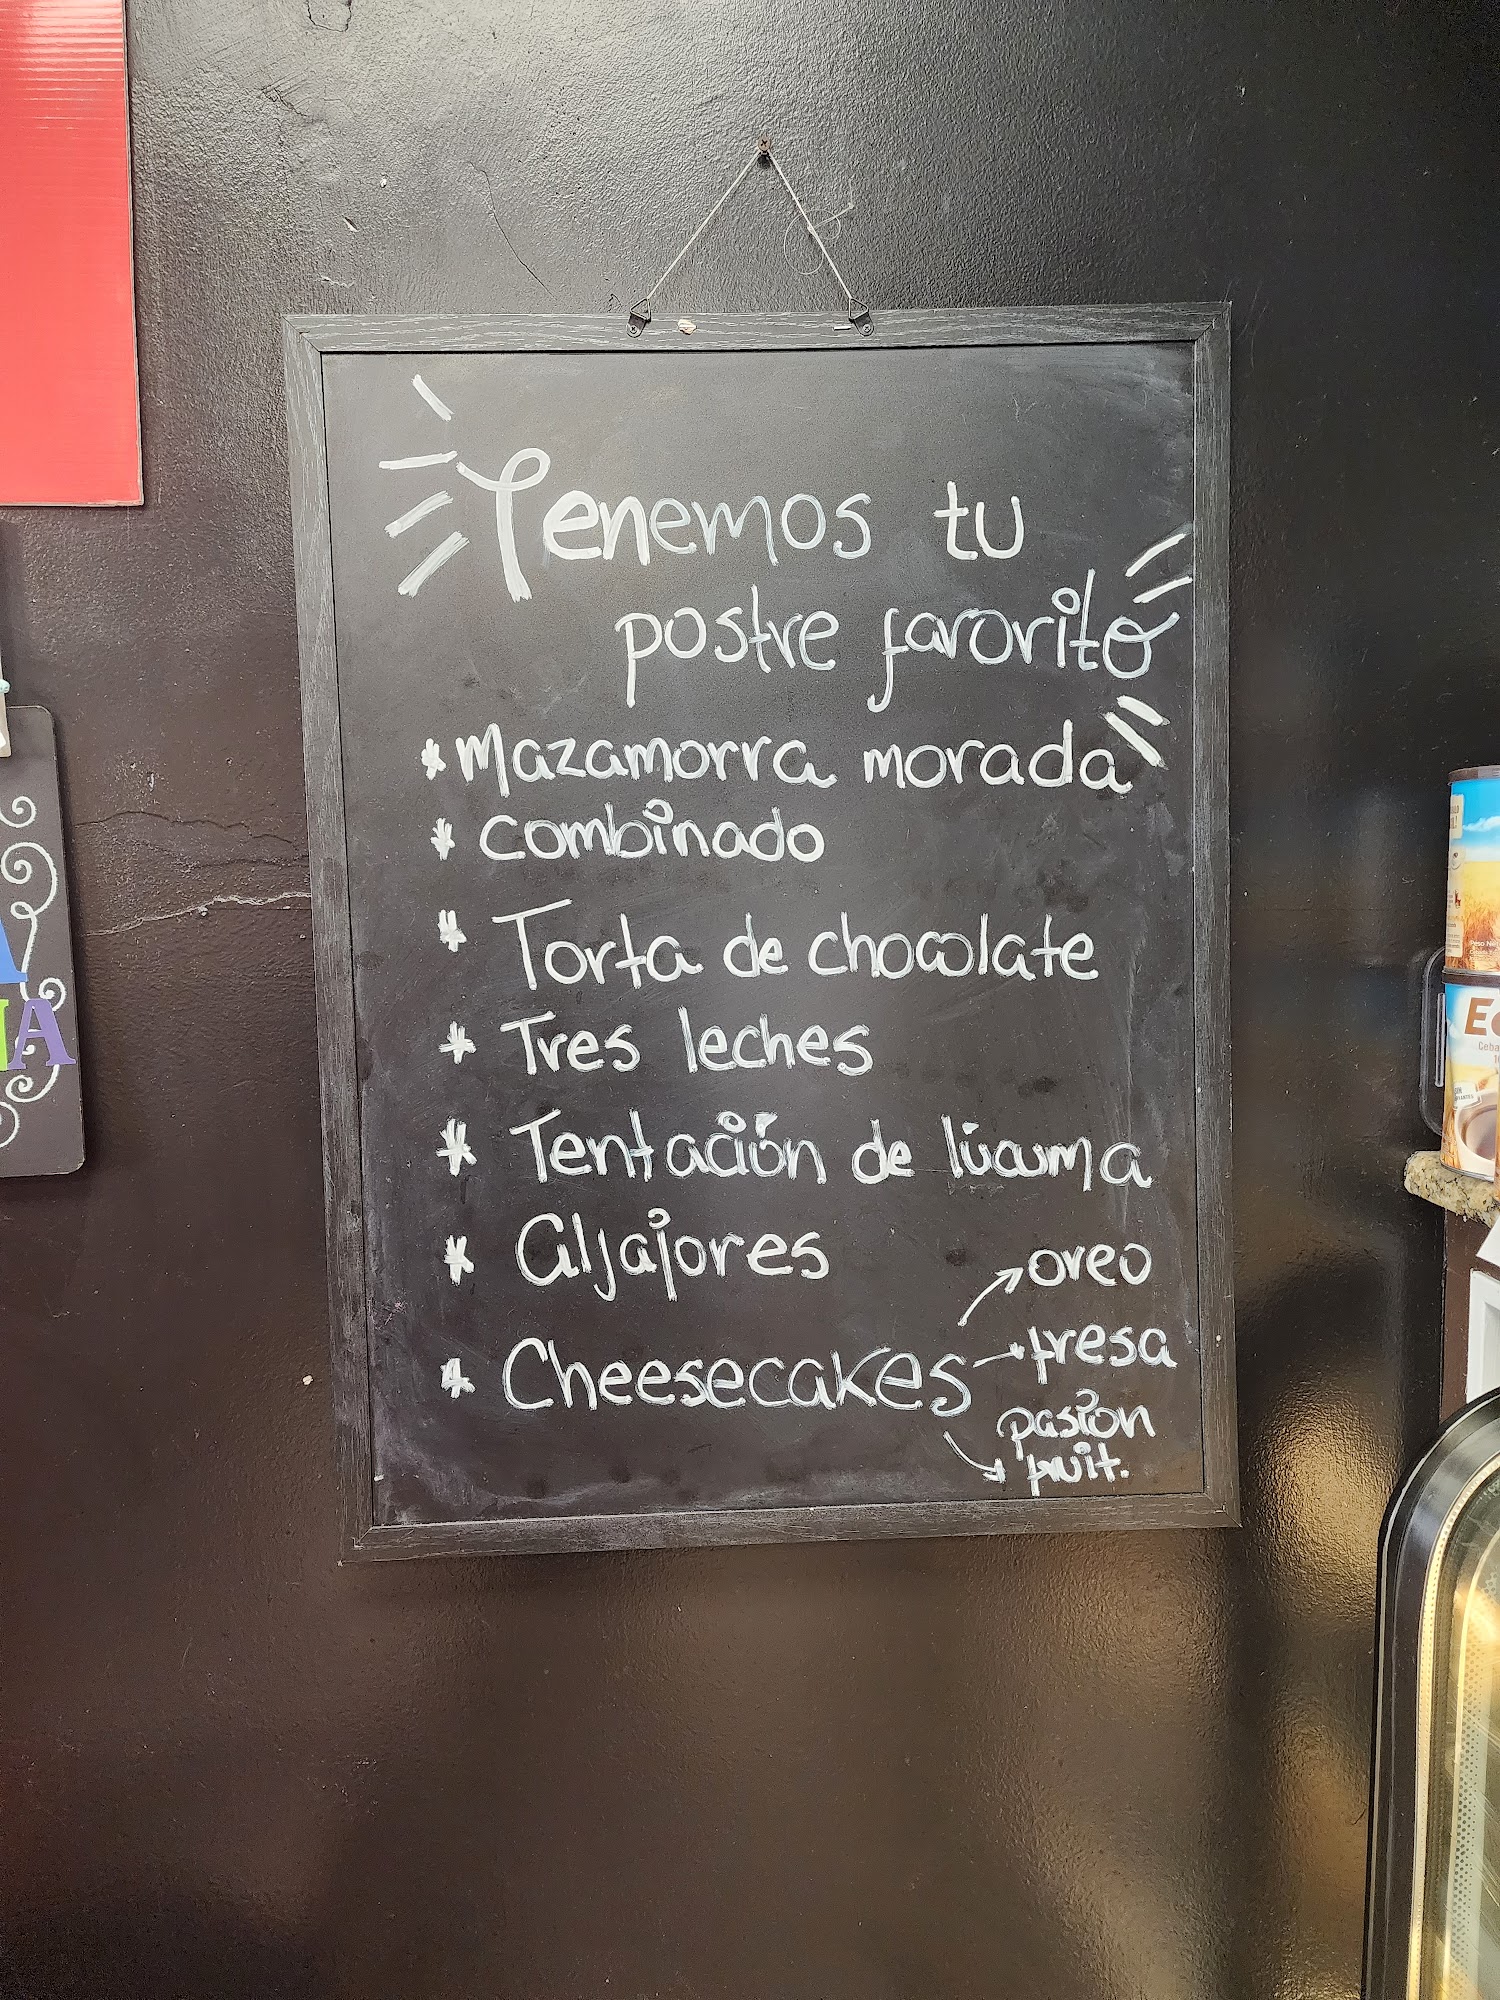 Tenemos tu
postre favorito
* Mazamorra morada
* combinado
* Torta de chocolate
* Tres leches
* Tentación de lúcuma
* Alfajores
* Cheesecakes → oreo
→ fresa
→ pasion
fruit.
A
NA
Peso Ne
Ec
Ceba